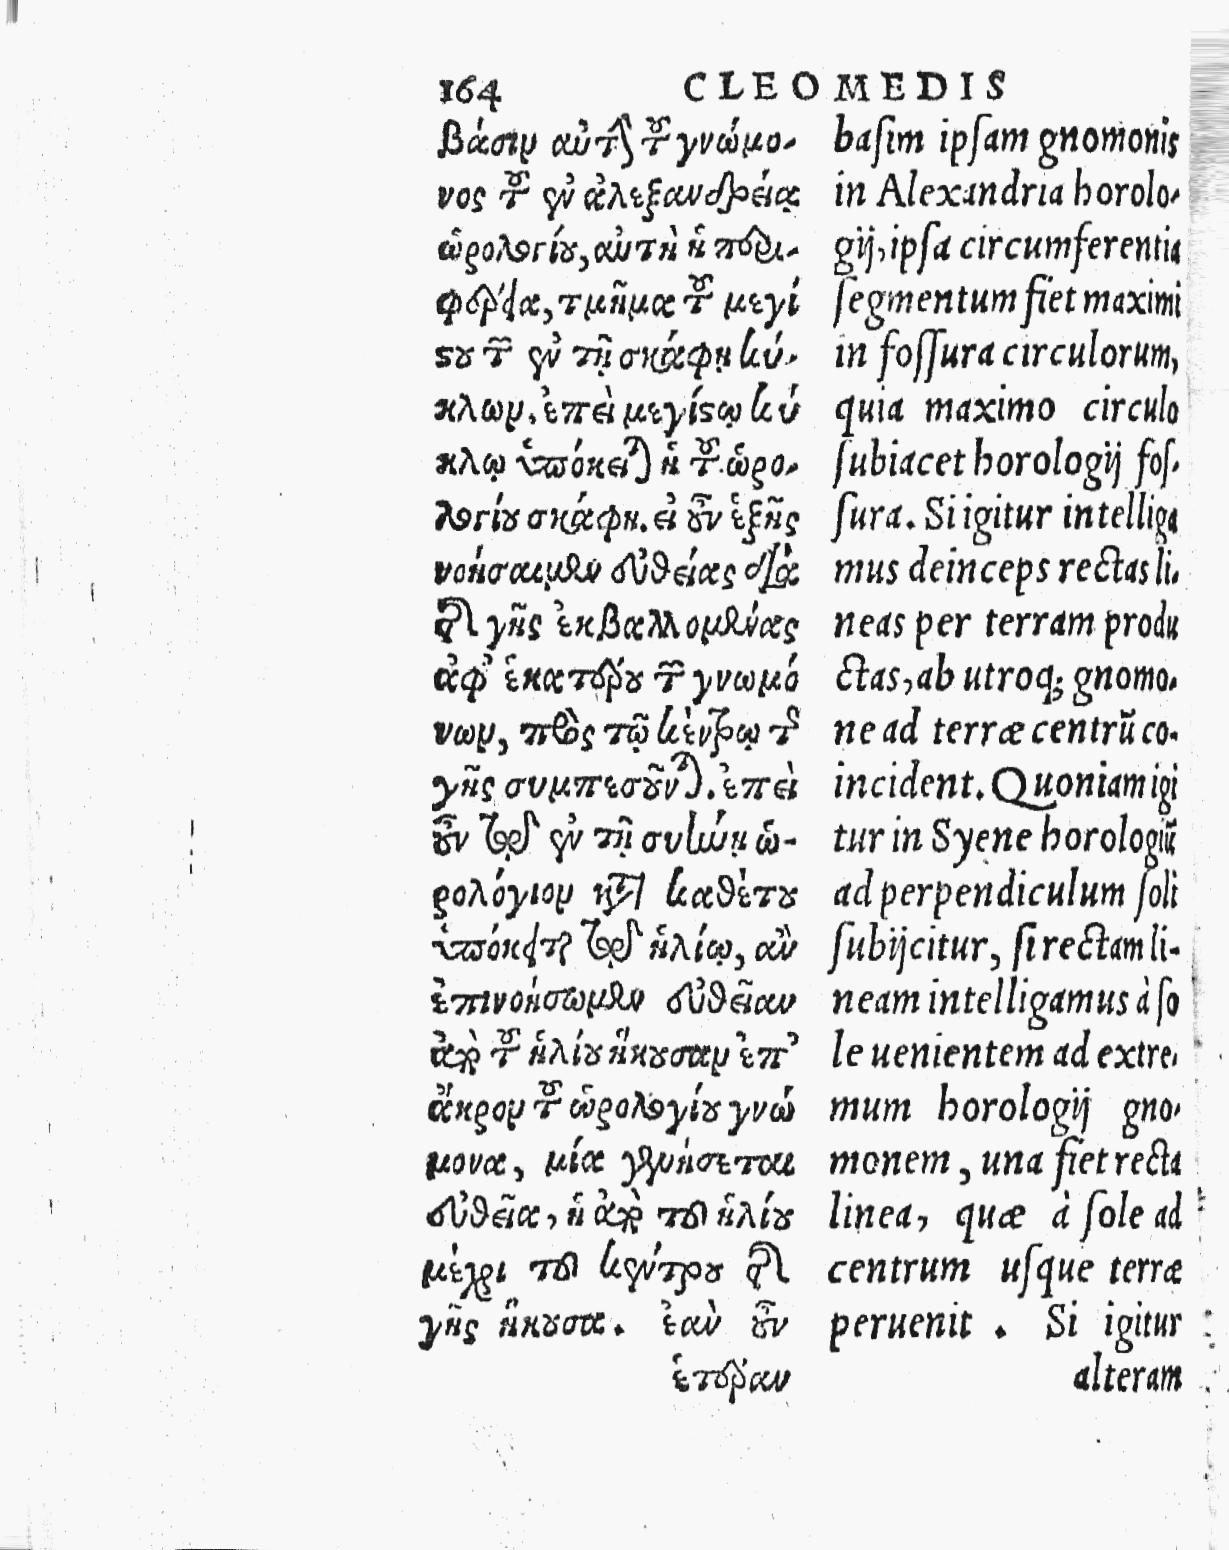 164 CLEOMEDIS
βάσιν αὐτὴν τοῦ γνώμο-
νος τοῦ ἐν ἀλεξανδρείᾳ
ὡρολογίου, αὐτὴ ἡ περι-
φέρεια, τμῆμα τοῦ μεγί
στου τῶν ἐν τῇ σκάφῃ κύ-
κλων. ἐπεὶ μεγίστῳ κύ
κλῳ ὑπόκειται ἡ τοῦ ὡρο-
λογίου σκάφη. εἰ οὖν ἑξῆς
νοήσαιμεν εὐθείας διὰ
τῆς γῆς ἐκβαλλομένας
ἀφ' ἑκατέρου τῶν γνωμό
νων, πρὸς τῷ κέντρῳ τῆς
γῆς συμπεσοῦνται. ἐπεὶ
οὖν τὸ ἐν τῇ συήνῃ ὡ-
ρολόγιον κατὰ κάθετον
ὑπόκειται τῷ ἡλίῳ, ἂν
ἐπινοήσωμεν εὐθεῖαν
ἀπὸ τοῦ ἡλίου ἥκουσαν ἐπ'
ἄκρον τοῦ ὡρολογίου γνώ
μονα, μία γενήσεται
εὐθεῖα, ἡ ἀπὸ τοῦ ἡλίου
μέχρι τοῦ κέντρου τῆς
γῆς ἥκουσα. ἐὰν οὖν
ἑτέραν
basim ipsam gnomonis
in Alexandria horolo-
gij, ipsa circumferentia
segmentum fiet maximi
in fossura circulorum,
quia maximo circulo
subiacet horologij fos-
sura. Si igitur intelliga
mus deinceps rectas li-
neas per terram produ
ctas, ab utroq; gnomo-
ne ad terræ centrũ co-
incident. Quoniam igi
tur in Syene horologiũ
ad perpendiculum soli
subijcitur, si rectam li-
neam intelligamus à so
le uenientem ad extre-
mum horologij gno-
monem, una fiet recta
linea, quæ à sole ad
centrum usque terræ
peruenit. Si igitur
alteram